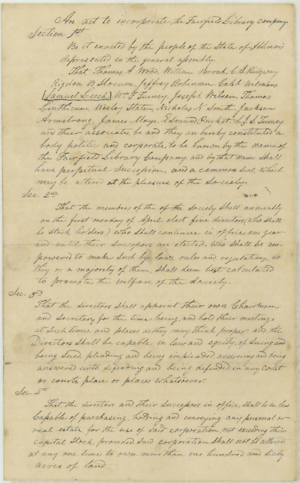 An act to incorporate the Fairfield Library company
Section 1st
Be it enacted by the people of the State of Illinois
represented in the general assembly.
That Thomas A. William
Rigdon B. Slocum, Jeffrey Robinson Caleb Williams
Samuel Leech, Turney, Joseph Wilson,
Wesley Staton Nicholas N Smith, Jackson
Armstrong, James Mayo, Edmund L J S Turney
and their associates be and they are hereby constituted a
body politic and corporate to be known by the name of
the Fairfield Library Company and by that name shall
have perpetual succession, and a common seal, which
may be altered at the pleasure of the Society.
Sec. 2nd
That the members of the of the Society shall annually
on the first monday of April elect five directors, (who shall
be stock holders) who shall continue in office one year
and until their successors are elected. Who shall be em-
powered to make such by laws rules and regulations, as
they or a majority of them, shall deem best calculated
to promote the welfare of the Society.
Sec. 3d
That the directors shall appoint their own Chairman
and Secretary for the time being, and hold their meetings
at such times and places as they may think proper and the
Directors shall be capable in law and equity of suing and
being sued pleading and being impleaded answering and being
answered unto defending and being defended in any court
or courts place or places whatsoever.
Sec.
That the directors and their successors in office, shall be in law
capable of purchasing holding and conveying any personal or
real estate for the use of said corporation not exceeding their
capital Stock, provided said corporation shall not be allowed
at any one time to own more than one hundred and sixty
acres of land